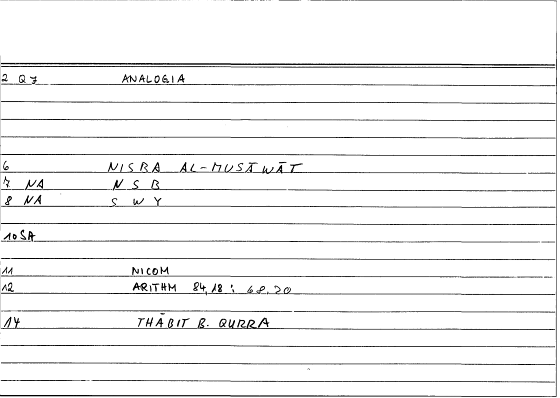 2 Q7 ANALOGIA
6 NISBA AL-MUSĀWĀT
7 NA N S B
8 NA S W Y
10 SA
11 NICOM
12 ARITHM 84,18 : 68.20
14 THĀBIT B. QURRA